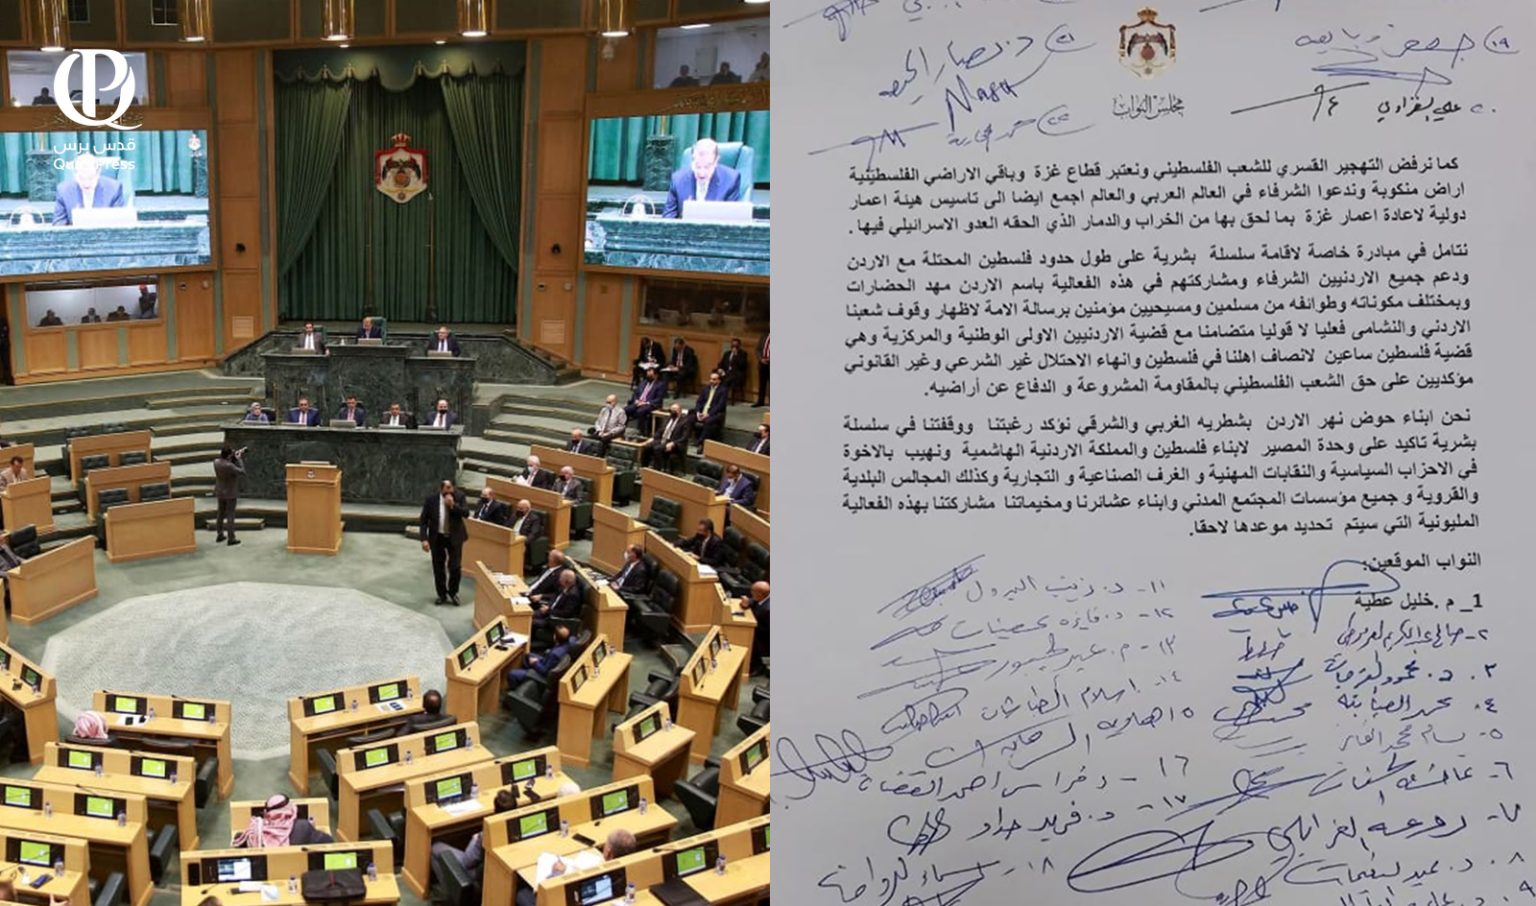 قدس برس
Quds Press
مجلس النواب
كما نرفض التهجير القسري للشعب الفلسطيني ونعتبر قطاع غزة وباقي الاراضي الفلسطينية
اراض منكوبة وندعوا الشرفاء في العالم العربي والعالم اجمع ايضا الى تاسيس هيئة اعمار
دولية لاعادة اعمار غزة بما لحق بها من الخراب والدمار الذي الحقه العدو الاسرائيلي فيها .
نتامل في مبادرة خاصة لاقامة سلسلة بشرية على طول حدود فلسطين المحتلة مع الاردن
ودعم جميع الاردنيين الشرفاء ومشاركتهم في هذه الفعالية باسم الاردن مهد الحضارات
وبمختلف مكوناته وطوائفه من مسلمين ومسيحيين مؤمنين برسالة الامة لاظهار وقوف شعبنا
الاردني والنشامى فعليا لا قوليا متضامنا مع قضية الاردنيين الاولى الوطنية والمركزية وهي
قضية فلسطين ساعين لانصاف اهلنا في فلسطين وانهاء الاحتلال غير الشرعي وغير القانوني
مؤكديين على حق الشعب الفلسطيني بالمقاومة المشروعة و الدفاع عن أراضيه.
نحن ابناء حوض نهر الاردن بشطريه الغربي والشرقي نؤكد رغبتنا ووقفتنا في سلسلة
بشرية تاكيد على وحدة المصير لابناء فلسطين والمملكة الاردنية الهاشمية ونهيب بالاخوة
في الاحزاب السياسية والنقابات المهنية و الغرف الصناعية و التجارية وكذلك المجالس البلدية
والقروية و جميع مؤسسات المجتمع المدني وابناء عشائرنا ومخيماتنا مشاركتنا بهذه الفعالية
المليونية التي سيتم تحديد موعدها لاحقا.
النواب الموقعين:
1_ م .خليل عطية
٤- محمد
٥- بسام محمد الفايز
١١- د. زينب البدول
١٢- د. فايزه
١٣- م. عبير الجبور
١٤- اسلام الطباشات
١٦- د فراس احمد القضاة
١٧- د. فريد حداد
١٨- اسماء الرواحنة